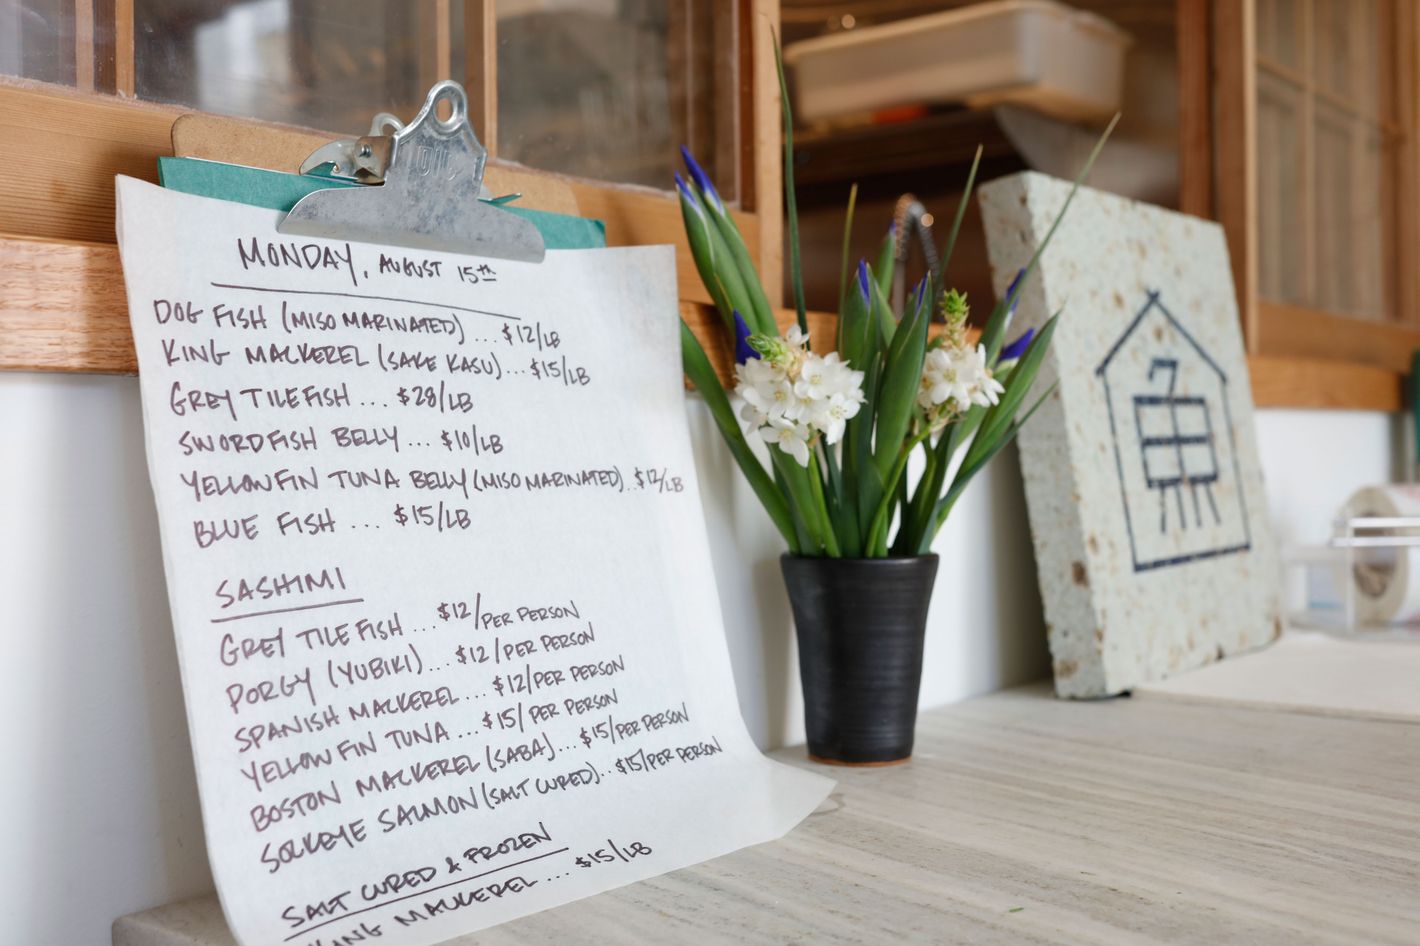 MONDAY, AUGUST 15th
DOG FISH (MISO MARINATED) ... $12/LB
KING MACKEREL (SAKE KASU) ... $15/LB
GREY TILEFISH ... $28/LB
SWORDFISH BELLY ... $10/LB
YELLOWFIN TUNA BELLY (MISO MARINATED) .. $12/LB
BLUE FISH ... $15/LB
SASHIMI
GREY TILEFISH ... $12/PER PERSON
PORGY (YUBIKI) ... $12/PER PERSON
SPANISH MACKEREL ... $12/PER PERSON
YELLOWFIN TUNA ... $15/PER PERSON
BOSTON MACKEREL (SABA) ... $15/PER PERSON
SOCKEYE SALMON (SALT CURED) .. $15/PER PERSON
SALT CURED & FROZEN
KING MACKEREL ... $15/LB